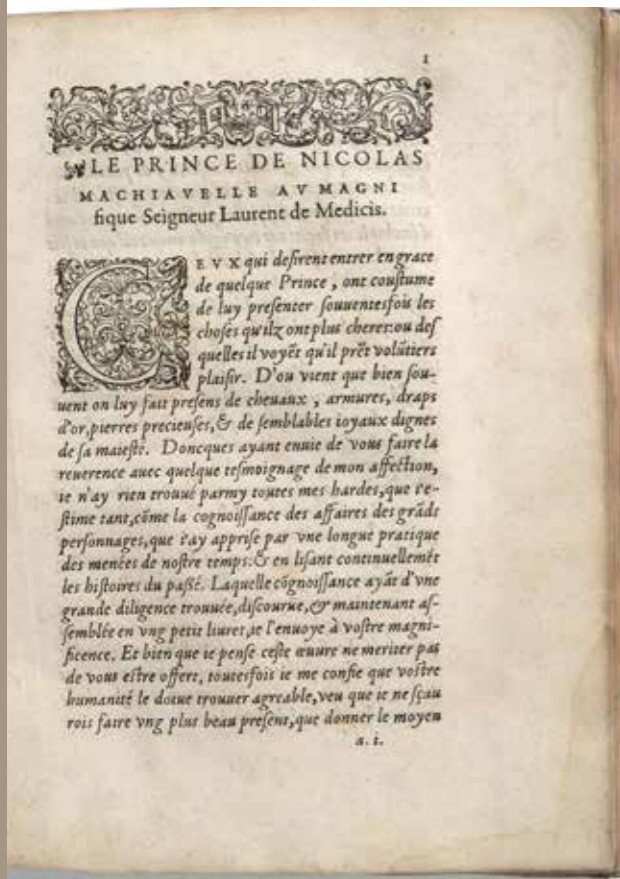 1
LE PRINCE DE NICOLAS
MACHIAVELLE AV MAGNI
fique Seigneur Laurent de Medicis.
CEVX qui deſirent entrer en grace
de quelque Prince, ont couſtume
de luy preſenter ſouuentesfois les
choſes qu'ilz ont plus cheres: ou deſ
quelles il voyẽt qu'il prẽt volũtiers
plaiſir. D'ou vient que bien ſou-
uent on luy fait preſens de cheuaux, armures, draps
d'or, pierres precieuſes, & de ſemblables ioyaux dignes
de ſa maieſté. Doncques ayant enuie de vous faire la
reuerence auec quelque teſmoignage de mon affection,
ie n'ay rien trouué parmy toutes mes hardes, que i'e-
ſtime tant, cõme la cognoiſſance des affaires des grãds
perſonnages, que i'ay appriſe par vne longue pratique
des menées de noſtre temps: & en liſant continuellemẽt
les hiſtoires du paſſé. Laquelle cõgnoiſſance ayãt d'vne
grande diligence trouuée, diſcourue, & maintenant aſ-
ſemblée en vng petit liuret, ie l'enuoye à voſtre magni-
ficence. Et bien que ie penſe ceſte œuure ne meriter pas
de vous eſtre offert, toutesfois ie me confie que voſtre
humanité le doiue trouuer agreable, veu que ie ne ſçau
rois faire vng plus beau preſent, que donner le moyen
a. i.